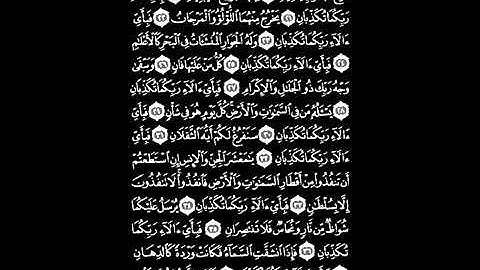 رَبِّكُمَا تُكَذِّبَانِ ٢١ يَخْرُجُ مِنْهُمَا ٱللُّؤْلُؤُ وَٱلْمَرْجَانُ ٢٢ فَبِأَيِّ
ءَالَآءِ رَبِّكُمَا تُكَذِّبَانِ ٢٣ وَلَهُ ٱلْجَوَارِ ٱلْمُنشَـَٔاتُ فِى ٱلْبَحْرِ كَٱلْأَعْلَٰمِ
٢٤ فَبِأَيِّ ءَالَآءِ رَبِّكُمَا تُكَذِّبَانِ ٢٥ كُلُّ مَنْ عَلَيْهَا فَانٍ ٢٦ وَيَبْقَىٰ
وَجْهُ رَبِّكَ ذُو ٱلْجَلَٰلِ وَٱلْإِكْرَامِ ٢٧ فَبِأَيِّ ءَالَآءِ رَبِّكُمَا تُكَذِّبَانِ
٢٨ يَسْـَٔلُهُۥ مَن فِى ٱلسَّمَٰوَٰتِ وَٱلْأَرْضِ كُلَّ يَوْمٍ هُوَ فِى شَأْنٍ ٢٩ فَبِأَيِّ
ءَالَآءِ رَبِّكُمَا تُكَذِّبَانِ ٣٠ سَنَفْرُغُ لَكُمْ أَيُّهَ ٱلثَّقَلَانِ ٣١ فَبِأَيِّ
ءَالَآءِ رَبِّكُمَا تُكَذِّبَانِ ٣٢ يَٰمَعْشَرَ ٱلْجِنِّ وَٱلْإِنسِ إِنِ ٱسْتَطَعْتُمْ
أَن تَنفُذُوا۟ مِنْ أَقْطَارِ ٱلسَّمَٰوَٰتِ وَٱلْأَرْضِ فَٱنفُذُوا۟ لَا تَنفُذُونَ
إِلَّا بِسُلْطَٰنٍ ٣٣ فَبِأَيِّ ءَالَآءِ رَبِّكُمَا تُكَذِّبَانِ ٣٤ يُرْسَلُ عَلَيْكُمَا
شُوَاظٌ مِّن نَّارٍ وَنُحَاسٌ فَلَا تَنتَصِرَانِ ٣٥ فَبِأَيِّ ءَالَآءِ رَبِّكُمَا
تُكَذِّبَانِ ٣٦ فَإِذَا ٱنشَقَّتِ ٱلسَّمَآءُ فَكَانَتْ وَرْدَةً كَٱلدِّهَانِ